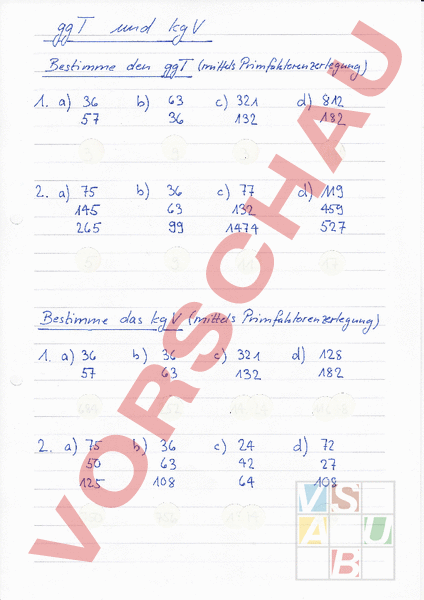 ggT und kgV
Bestimme den ggT (mittels Primfaktorenzerlegung)
1. a) 36 b) 63 c) 321 d) 812
57 36 132 182
2. a) 75 b) 36 c) 77 d) 119
145 63 132 459
265 99 1474 527
Bestimme das kgV (mittels Primfaktorenzerlegung)
1. a) 36 b) 36 c) 321 d) 128
57 63 132 182
2. a) 75 b) 36 c) 24 d) 72
50 63 42 27
125 108 64 108
VORSCHAU
VS
AU
B